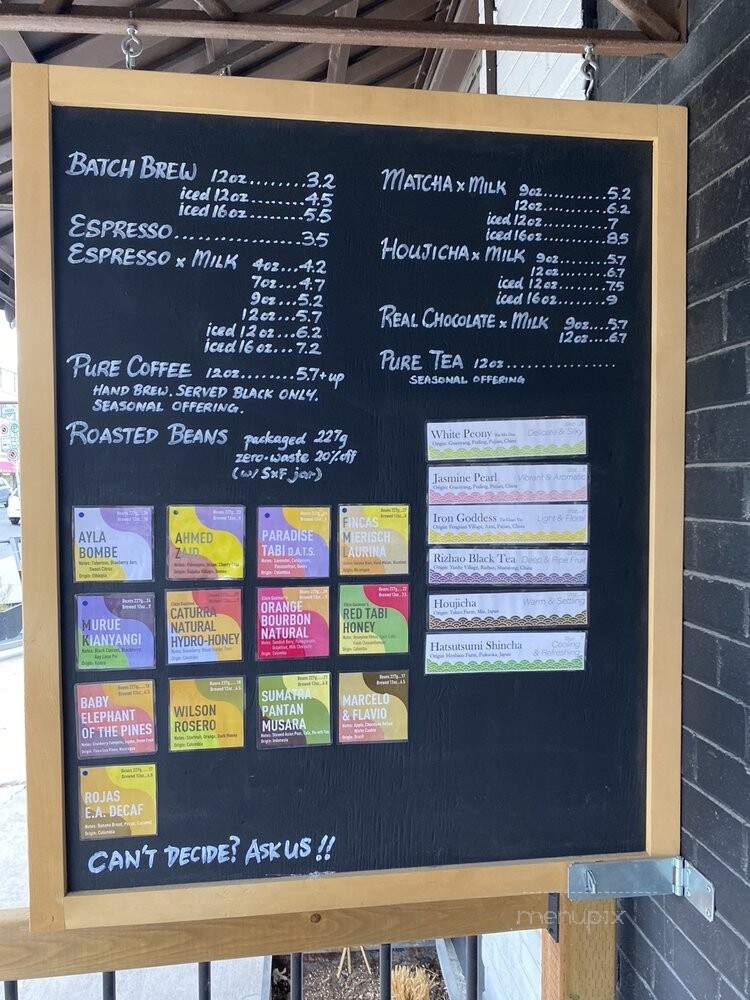 BATCH BREW 12oz........3.2
iced 12oz........4.5
iced 16oz........5.5
ESPRESSO......................3.5
ESPRESSO x MILK 4oz...4.2
7oz...4.7
9oz...5.2
12oz...5.7
iced 12oz...6.2
iced 16oz...7.2
PURE COFFEE 12oz........5.7+up
HAND BREW. SERVED BLACK ONLY.
SEASONAL OFFERING.
ROASTED BEANS packaged 227g
zero-waste 20% off
(w/ SxF jar)
MATCHA x MILK 9oz..........5.2
12oz..........6.2
iced 12oz..........7
iced 16oz..........8.5
HOUJICHA x MILK 9oz........5.7
12oz........6.7
iced 12oz........7.5
iced 16oz........9
REAL CHOCOLATE x MILK 9oz...5.7
12oz...6.7
PURE TEA 12oz..................
SEASONAL OFFERING
White Peony Delicate & Silky
Jasmine Pearl Vibrant & Aromatic
Iron Goddess Light & Floral
Rizhao Black Tea Deep & Ripe Fruit
Houjicha Warm & Settling
Hatsutsumi Shincha Cooling
& Refreshing
AYLA
BOMBE
Origin: Ethiopia
AHMED
ZAID
PARADISE
TABI D.A.T.S.
Origin: Colombia
FINCAS
MIERISCH
LAURINA
Origin: Nicaragua
MURUE
KIANYANGI
Origin: Kenya
CATURRA
NATURAL
HYDRO-HONEY
Origin: Colombia
ORANGE
BOURBON
NATURAL
Origin: Colombia
RED TABI
HONEY
Origin: Colombia
BABY
ELEPHANT
OF THE PINES
WILSON
ROSERO
Origin: Colombia
SUMATRA
PANTAN
MUSARA
Origin: Indonesia
MARCELO
& FLAVIO
Origin: Brazil
ROJAS
E.A. DECAF
Origin: Colombia
CAN'T DECIDE? ASK US !!
menupix